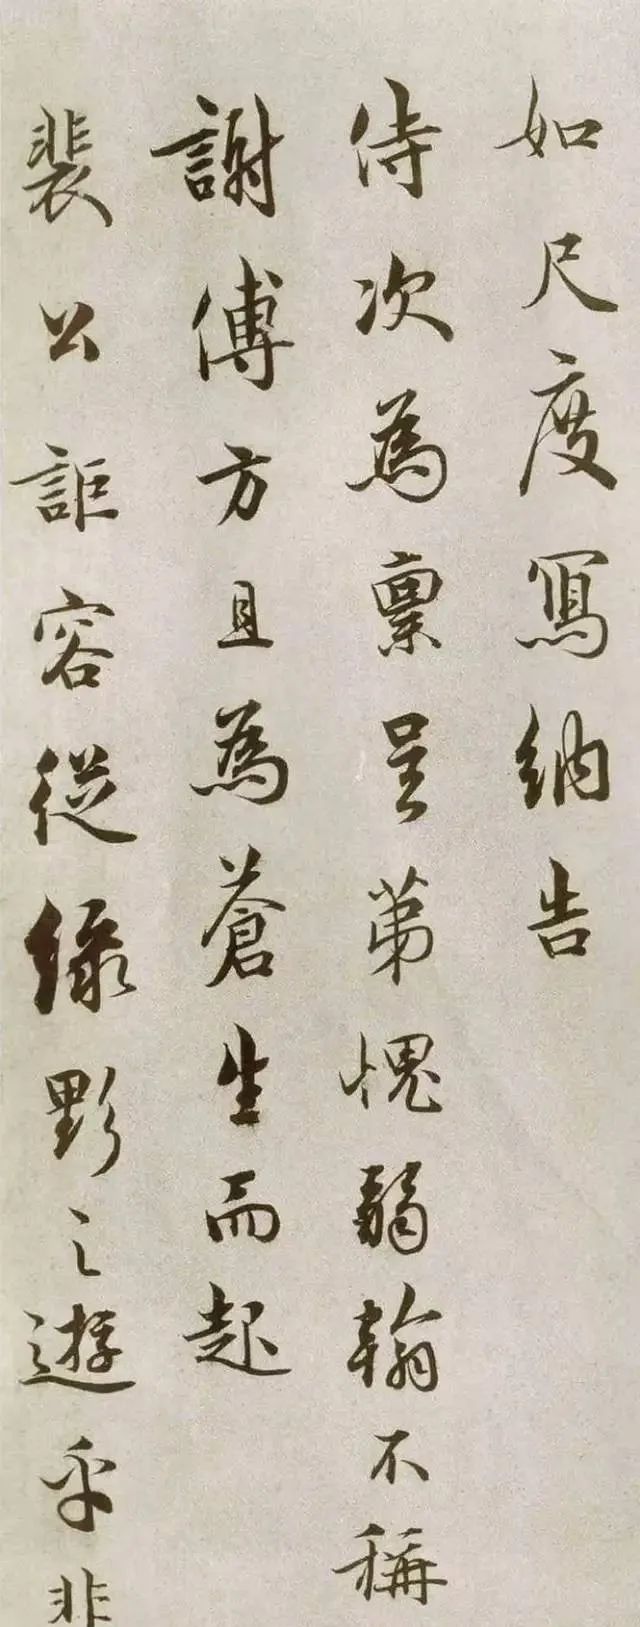 如尺度寫納告
侍次為稟呈第愧翰不稱
謝傅方且為蒼生而起
裴公詎容從綠野之遊乎非